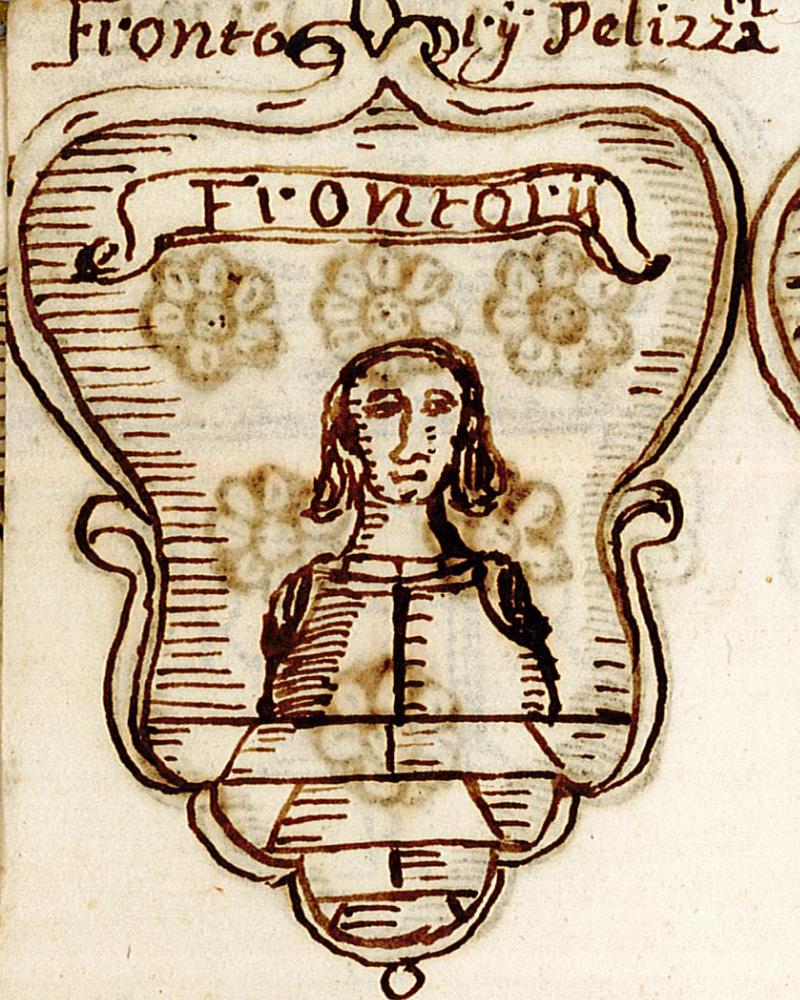 Fronto rÿ Pelizza
Frontorÿ